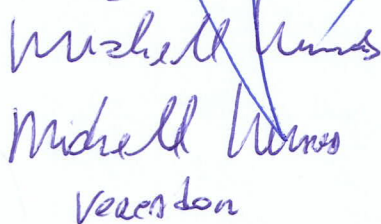 Mishell Nunes
Michell Nunes
Vereador